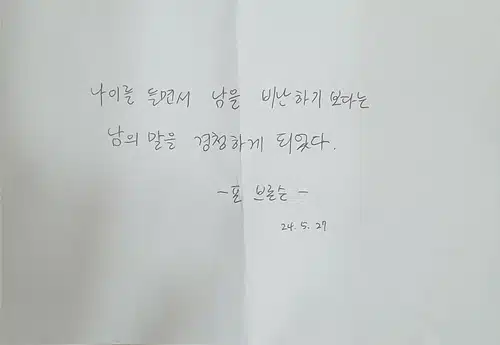 나이를 들면서 남을 비난하기 보다는
남의 말을 경청하게 되었다.
- 포 브론슨 -
24. 5. 27